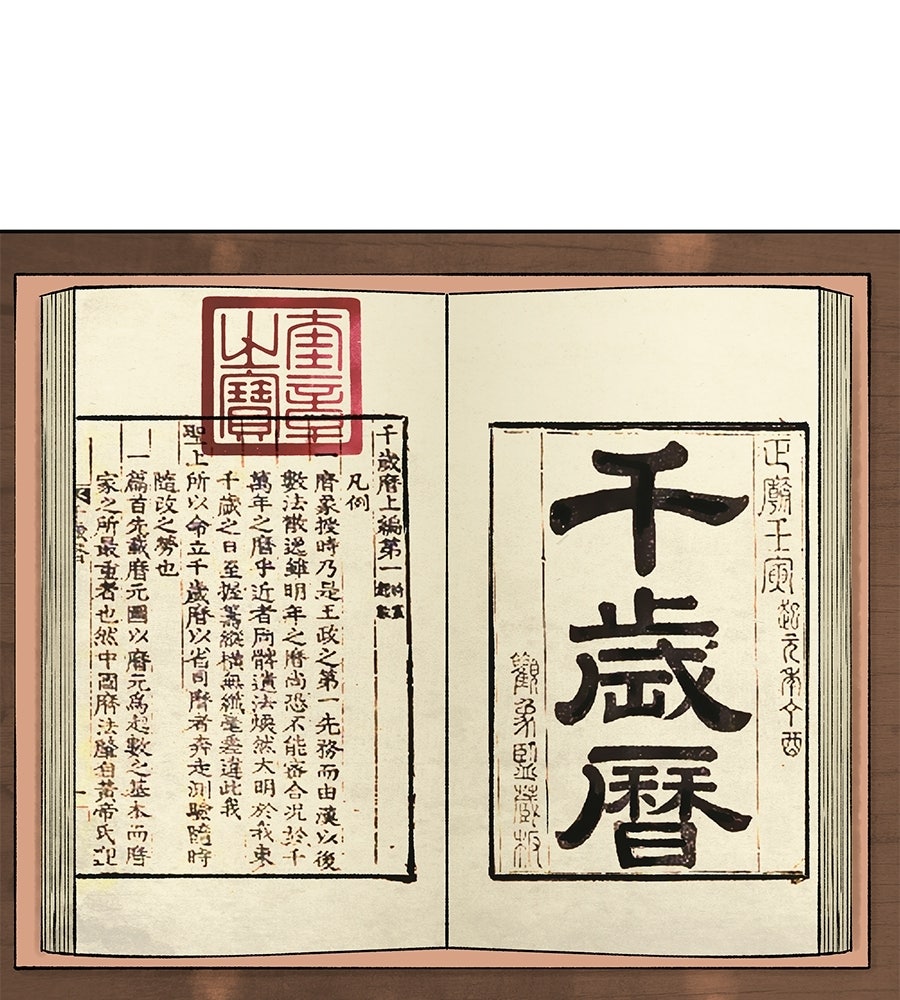 正廟壬寅
千歲曆
觀象監藏板
奎章
之寶
千歲曆上編第一
凡例
一曆象授時乃是王政之第一先務而由漢以後
數法散逸雖明年之曆尚恐不能審合況於千
萬年之曆乎近者周髀遺法煥然大明於我東
千歲之日至握籌縱橫無纖毫差違此我
聖上所以命立千歲曆以省司曆者奔走測驗隨時
隨改之勞也
一篇首先載曆元圖以曆元爲起數之基本而曆
家之所最重者也然中國曆法肇自黃帝氏迎